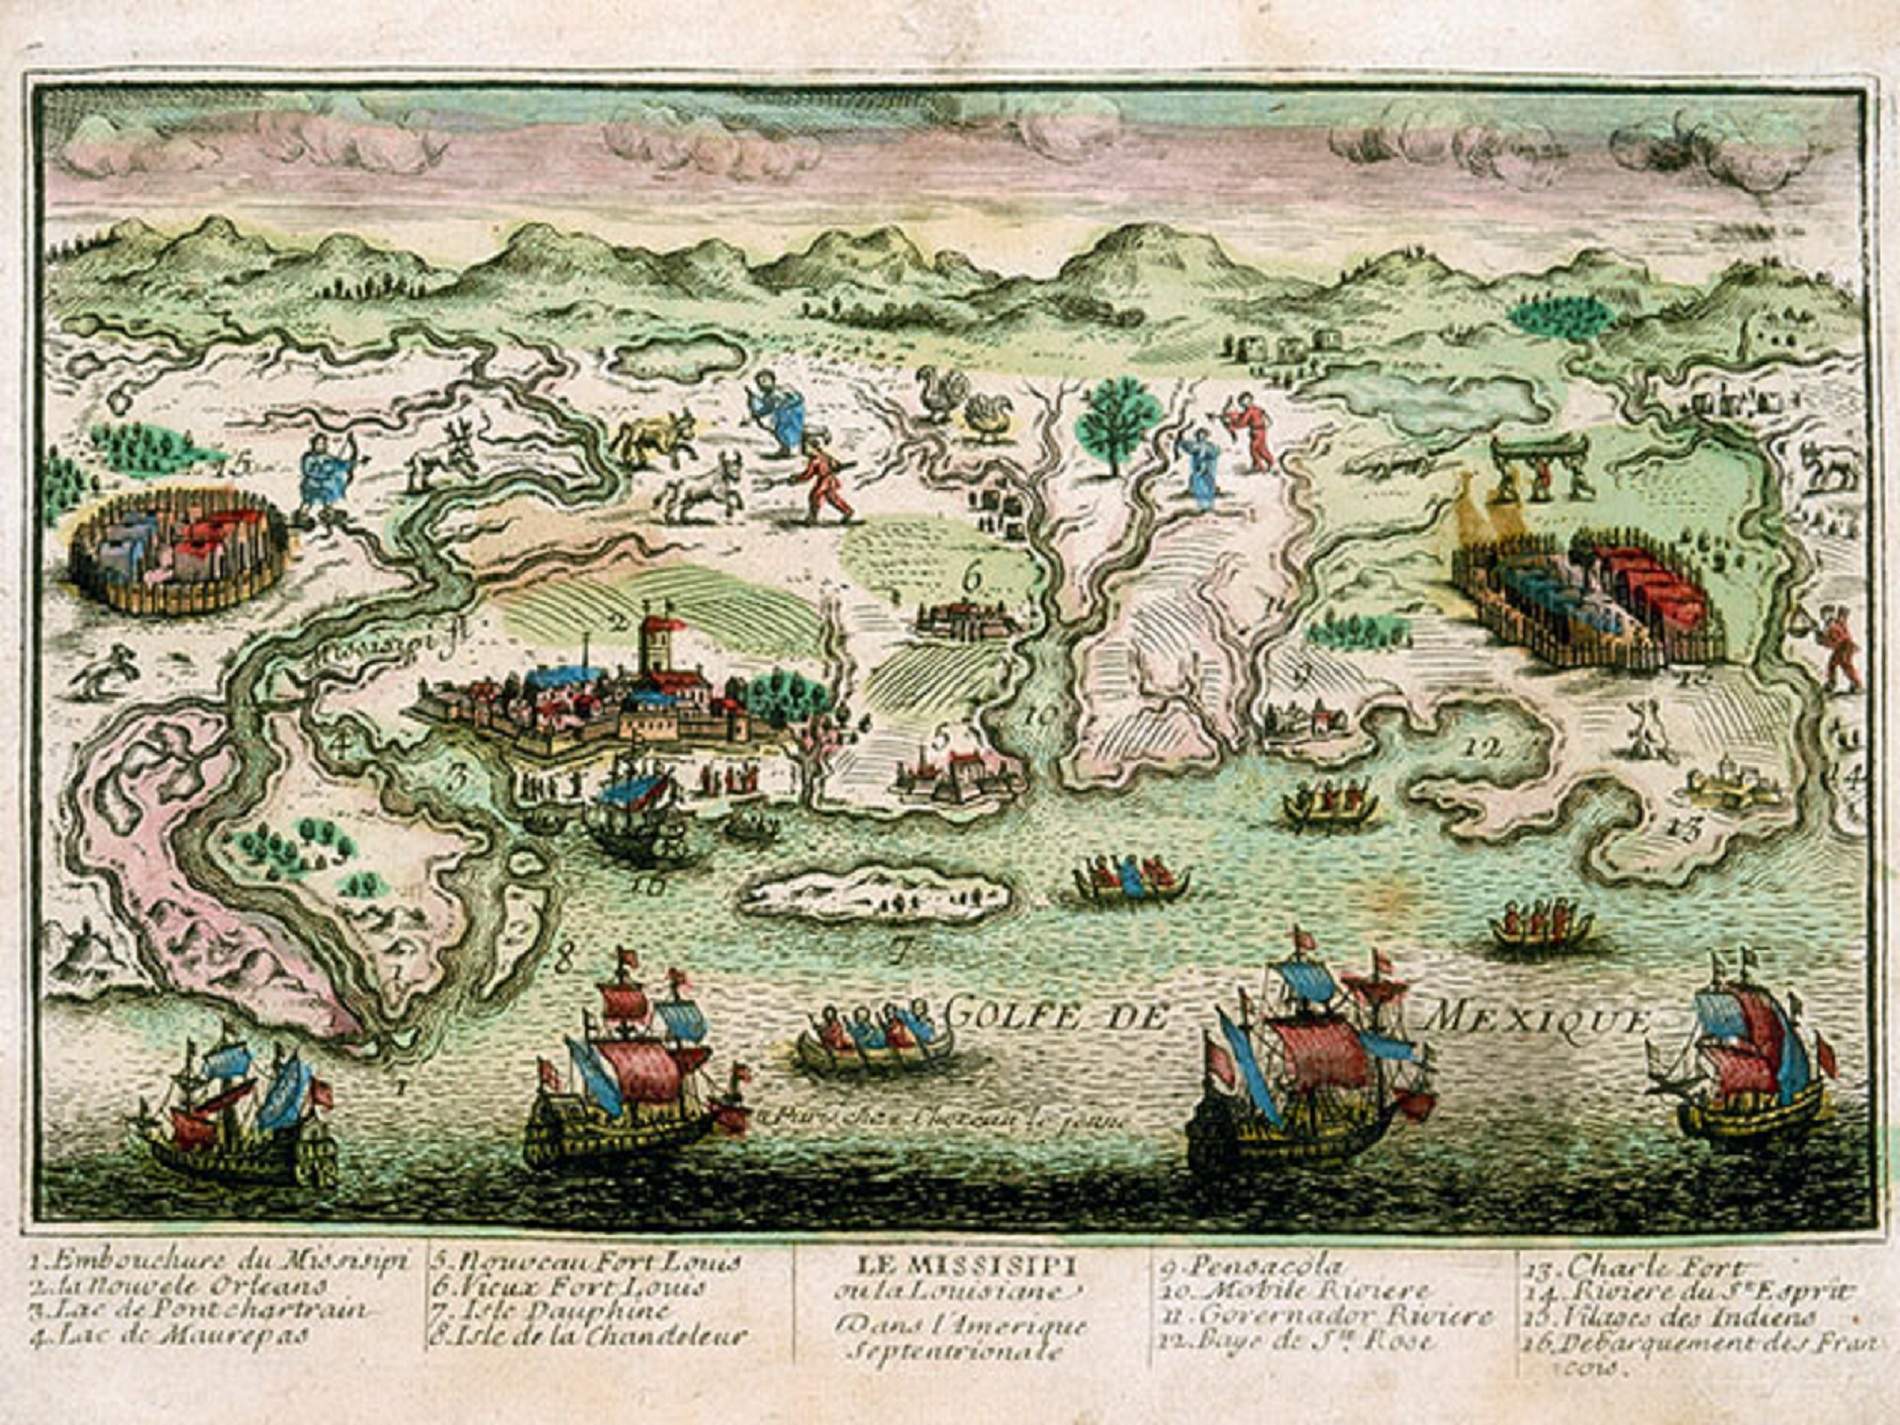 15
2
6
Missisipi fl.
11
9
15
10
4
3
5
12
14
13
16
7
8
1
GOLFE DE MEXIQUE
1
a Paris chez Chereau le jeune
1. Embouchure du Missisipi
2. la Nouvele Orleans
3. Lac de Pontchartrain
4. Lac de Maurepas
5. Nouveau Fort Louis
6. Vieux Fort Louis
7. Isle Dauphine
8. Isle de la Chandeleur
LE MISSISIPI
ou la Louisiane
Dans l'Amerique
Septentrionale
9. Pensacola
10. Mobile Riviere
11. Governador Riviere
12. Baye de Ste. Rose
13. Charle Fort
14. Riviere du St. Esprit
15. Vilages des Indiens
16. Debarquement des Fran
cois.